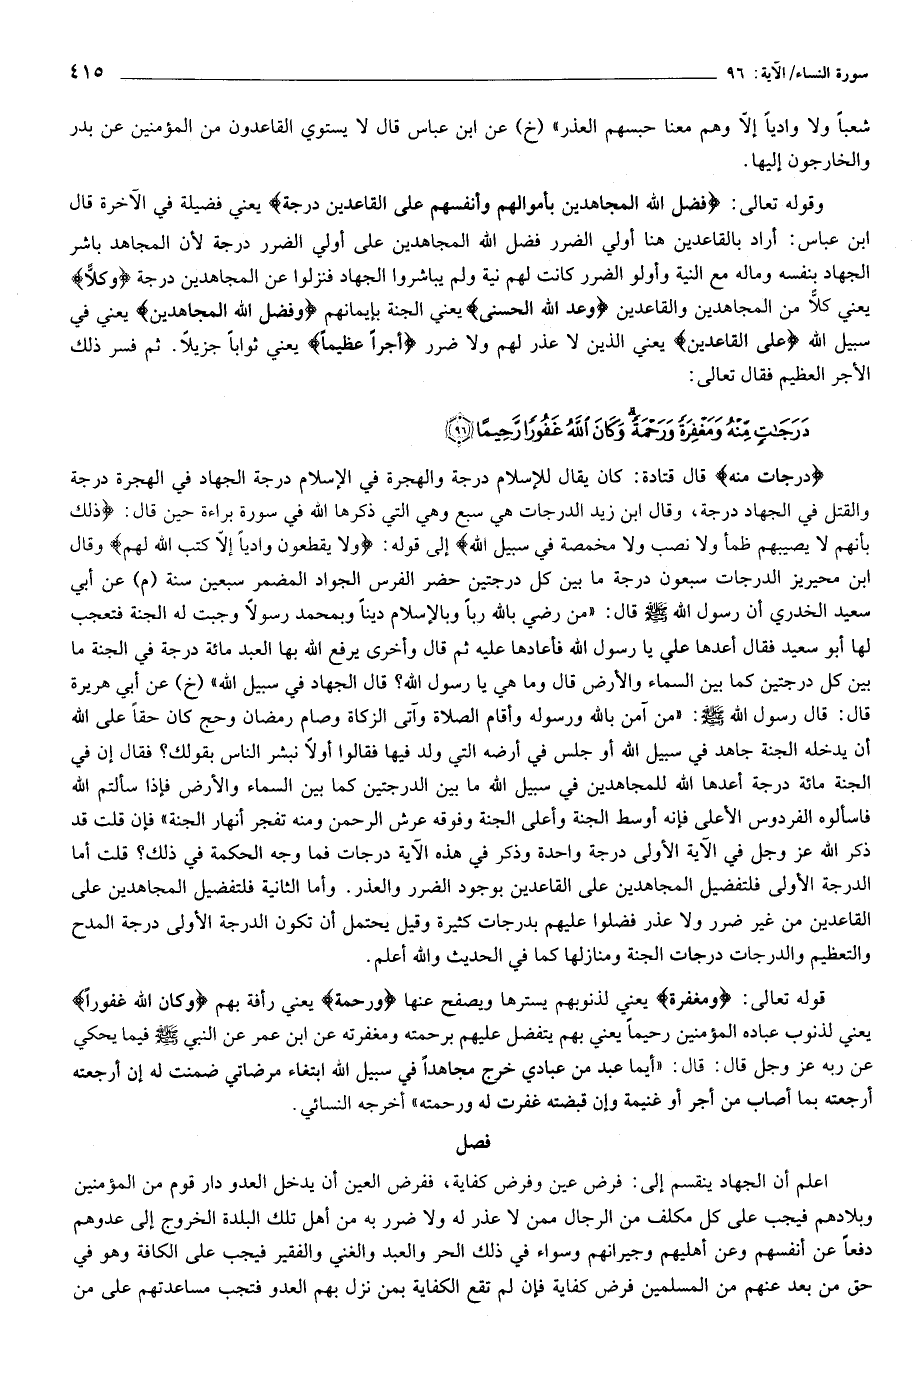 سورة النساء/ الآية: ٩٦ ٤١٥
شعباً ولا وادياً إلاّ وهم معنا حبسهم العذر» (خ) عن ابن عباس قال لا يستوي القاعدون من المؤمنين عن بدر
والخارجون إليها.
وقوله تعالى: ﴿فضل الله المجاهدين بأموالهم وأنفسهم على القاعدين درجة﴾ يعني فضيلة في الآخرة قال
ابن عباس: أراد بالقاعدين هنا أولي الضرر فضل الله المجاهدين على أولي الضرر درجة لأن المجاهد باشر
الجهاد بنفسه وماله مع النية وأولو الضرر كانت لهم نية ولم يباشروا الجهاد فنزلوا عن المجاهدين درجة ﴿وكلاًّ﴾
يعني كلاًّ من المجاهدين والقاعدين ﴿وعد الله الحسنى﴾ يعني الجنة بإيمانهم ﴿وفضل الله المجاهدين﴾ يعني في
سبيل الله ﴿على القاعدين﴾ يعني الذين لا عذر لهم ولا ضرر ﴿أجراً عظيماً﴾ يعني ثواباً جزيلاً. ثم فسر ذلك
الأجر العظيم فقال تعالى:
دَرَجَٰتٍ مِّنْهُ وَمَغْفِرَةً وَرَحْمَةً ۚ وَكَانَ ٱللَّهُ غَفُورًا رَّحِيمًا ﴿٩٦﴾
﴿درجات منه﴾ قال قتادة: كان يقال للإسلام درجة والهجرة في الإسلام درجة الجهاد في الهجرة درجة
والقتل في الجهاد درجة، وقال ابن زيد الدرجات هي سبع وهي التي ذكرها الله في سورة براءة حين قال: ﴿ذلك
بأنهم لا يصيبهم ظمأ ولا نصب ولا مخمصة في سبيل الله﴾ إلى قوله: ﴿ولا يقطعون وادياً إلاّ كتب الله لهم﴾ وقال
ابن محيريز الدرجات سبعون درجة ما بين كل درجتين حضر الفرس الجواد المضمر سبعين سنة (م) عن أبي
سعيد الخدري أن رسول الله ﷺ قال: «من رضي بالله رباً وبالإسلام ديناً وبمحمد رسولاً وجبت له الجنة فتعجب
لها أبو سعيد فقال أعدها علي يا رسول الله فأعادها عليه ثم قال وأخرى يرفع الله بها العبد مائة درجة في الجنة ما
بين كل درجتين كما بين السماء والأرض قال وما هي يا رسول الله؟ قال الجهاد في سبيل الله» (خ) عن أبي هريرة
قال: قال رسول الله ﷺ: «من آمن بالله ورسوله وأقام الصلاة وآتى الزكاة وصام رمضان وحج كان حقاً على الله
أن يدخله الجنة جاهد في سبيل الله أو جلس في أرضه التي ولد فيها فقالوا أولاً نبشر الناس بقولك؟ فقال إن في
الجنة مائة درجة أعدها الله للمجاهدين في سبيل الله ما بين الدرجتين كما بين السماء والأرض فإذا سألتم الله
فاسألوه الفردوس الأعلى فإنه أوسط الجنة وأعلى الجنة وفوقه عرش الرحمن ومنه تفجر أنهار الجنة» فإن قلت قد
ذكر الله عز وجل في الآية الأولى درجة واحدة وذكر في هذه الآية درجات فما وجه الحكمة في ذلك؟ قلت أما
الدرجة الأولى فلتفضيل المجاهدين على القاعدين بوجود الضرر والعذر. وأما الثانية فلتفضيل المجاهدين على
القاعدين من غير ضرر ولا عذر فضلوا عليهم بدرجات كثيرة وقيل يحتمل أن تكون الدرجة الأولى درجة المدح
والتعظيم والدرجات درجات الجنة ومنازلها كما في الحديث والله أعلم.
قوله تعالى: ﴿ومغفرة﴾ يعني لذنوبهم يسترها ويصفح عنها ﴿ورحمة﴾ يعني رأفة بهم ﴿وكان الله غفوراً﴾
يعني لذنوب عباده المؤمنين رحيماً يعني بهم يتفضل عليهم برحمته ومغفرته عن ابن عمر عن النبي ﷺ فيما يحكي
عن ربه عز وجل قال: قال: «أيما عبد من عبادي خرج مجاهداً في سبيل الله ابتغاء مرضاتي ضمنت له إن أرجعته
أرجعته بما أصاب من أجر أو غنيمة وإن قبضته غفرت له ورحمته» أخرجه النسائي.
فصل
اعلم أن الجهاد ينقسم إلى: فرض عين وفرض كفاية، ففرض العين أن يدخل العدو دار قوم من المؤمنين
وبلادهم فيجب على كل مكلف من الرجال ممن لا عذر له ولا ضرر به من أهل تلك البلدة الخروج إلى عدوهم
دفعاً عن أنفسهم وعن أهليهم وجيرانهم وسواء في ذلك الحر والعبد والغني والفقير فيجب على الكافة وهو في
حق من بعد عنهم من المسلمين فرض كفاية فإن لم تقع الكفاية بمن نزل بهم العدو فتجب مساعدتهم على من